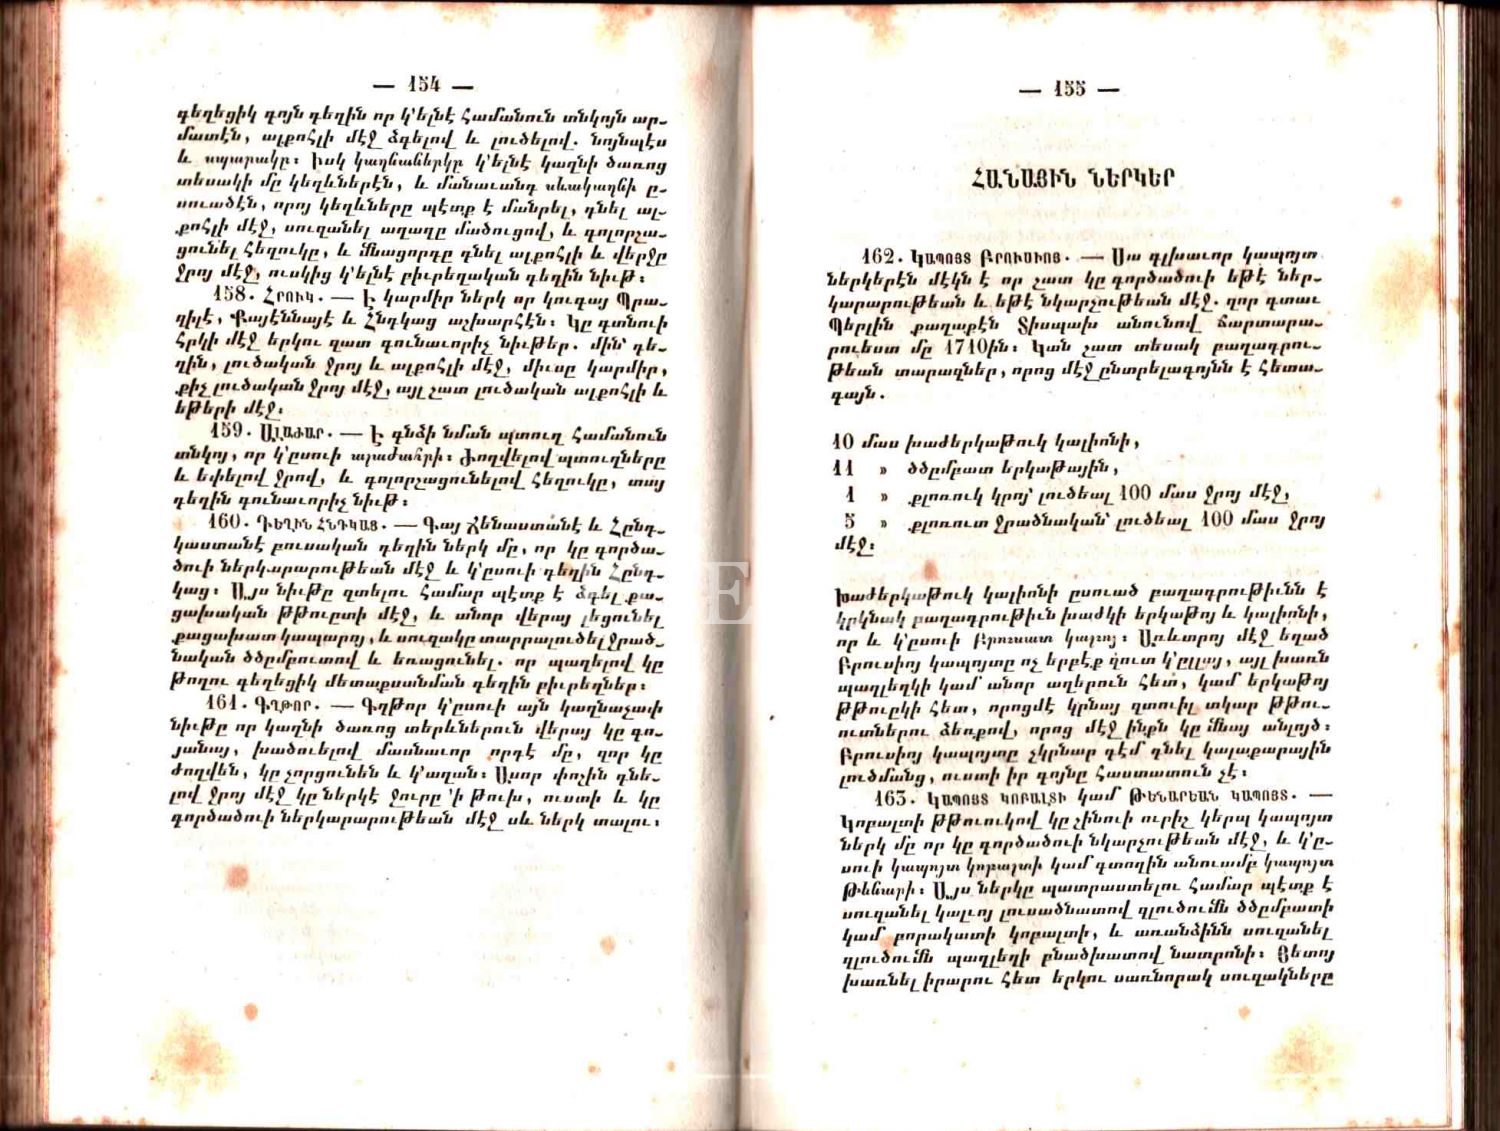 — 154 —
գեղեցիկ գոյն դեղին որ կ'ելնէ համանուն տնկոյն ար–
մատէն, ալքոհլի մէջ ձգելով և լուծելով. նոյնպէս
և սպարակը։ իսկ կաղնաներկը կ'ելնէ կաղնի ծառոց
տեսակի մը կեղևներէն, և մանաւանդ սևակաղնի ը–
սուածէն, որոյ կեղևները պէտք է մանրել, դնել ալ–
քոհլի մէջ, սուզանել աղաղը մածուցով, և գոլորշա–
ցունել հեղուկը, և մնացորդը դնել ալքոհլի և վերջը
ջրոյ մէջ, ուսկից կ'ելնէ բիւրեղական դեղին նիւթ։
158. ՀՐՈՒԿ. — Է կարմիր ներկ որ կուգայ Պրա–
զիլէ, Քայէննայէ և Հնդկաց աշխարհէն։ Կը գտնուի
հրկի մէջ երկու զատ գունաւորիչ նիւթեր. մին՝ դե–
ղին, լուծական ջրոյ և ալքոհլի մէջ, միւսը կարմիր,
քիչ լուծական ջրոյ մէջ, այլ շատ լուծական ալքոհլի և
եթերի մէջ։
159. ԱԼԱԺԱՐ. — Է գնձի նման պտուղ համանուն
տնկոյ, որ կ'ըսուի ալաժահրի։ Ժողվելով պտուղները
և եփելով ջրով, և գոլորշացունելով հեղուկը, տայ
դեղին գունաւորիչ նիւթ։
160. ԴԵՂԻՆ ՀՆԴԿԱՑ. — Գայ Ճենաստանէ և Հընդ–
կաստանէ բուսական դեղին ներկ մը, որ կը գործա–
ծուի ներկարարութեան մէջ և կ'ըսուի դեղին Հընդ–
կաց։ Այս նիւթը զտելու համար պէտք է ձգել քա–
ցախական թթուըտի մէջ, և անոր վերայ լեցունել
քացախատ կապարոյ, և սուզակը տարրալուծել ջրած–
նական ծծըմբուտով և եռացունել. որ պաղելով կը
թողու գեղեցիկ մետաքսանման դեղին բիւրեղներ։
161. ԳՂԹՈՐ. — Գղթոր կ'ըսուի այն կաղնաչափ
նիւթը որ կաղնի ծառոց տերևներուն վերայ կը գո–
յանայ, խածուելով մասնաւոր որդէ մը, զոր կը
ժողվեն, կը չորցունեն և կ'աղան։ Ասոր փոշին դնե–
լով ջրոյ մէջ կը ներկէ ջուրը 'ի թուխ, ուստի և կը
գործածուի ներկարարութեան մէջ սև ներկ տալու։
— 155 —
ՀԱՆԱՅԻՆ ՆԵՐԿԵՐ
162. ԿԱՊՈՅՏ ԲՐՈՒՍԻՈՅ. — Սա գլխաւոր կապոյտ
ներկերէն մէկն է որ շատ կը գործածուի եթէ ներ–
կարարութեան և եթէ նկարչութեան մէջ. զոր գտաւ
Պերլին քաղաքէն Տիսպախ անունով ճարտարա–
րուեստ մը 1710ին։ Կան շատ տեսակ բաղադրու–
թեան տարազներ, որոց մէջ ընտրելագոյնն է հետա–
գայն.
10 մաս խաժերկաթուկ կալիոնի,
11 » ծծըմբատ երկաթային,
1 » քլոռուկ կրոյ՝ լուծեալ 100 մաս ջրոյ մէջ,
5 » քլոռուտ ջրածնական՝ լուծեալ 100 մաս ջրոյ
մէջ։
Խաժերկաթուկ կալիոնի ըսուած բաղադրութիւնն է
կրկնակ բաղադրութիւն խաժկի երկաթոյ և կալիոնի,
որ և կ'ըսուի Բրուսատ կալւոյ։ Առևտրոյ մէջ եղած
Բրուսիոյ կապոյտը ոչ երբէք զուտ կ'ըլլայ, այլ խառն
պաղլեղկի կամ անոր աղերուն հետ, կամ երկաթոյ
թթուըկի հետ, որոցմէ կրնայ զտուիլ տկար թթու–
ուտներու ձեռքով, որոց մէջ ինքն կը մնայ անլոյծ։
Բրուսիոյ կապոյտը չկրնար դէմ դնել կալաքարային
լուծմանց, ուստի իր գոյնը հաստատուն չէ։
163. ԿԱՊՈՅՏ ԿՈԲԱԼՏԻ կամ ԹԵՆԱՐԵԱՆ ԿԱՊՈՅՏ. —
Կոբալտի թթուուկով կը շինուի ուրիշ կերպ կապոյտ
ներկ մը որ կը գործածուի նկարչութեան մէջ, և կ'ը–
սուի կապոյտ կոբալտի կամ գտողին անուամբ կապոյտ
Թենարի։ Այս ներկը պատրաստելու համար պէտք է
սուզանել կալւոյ լուսածնատով զլուծումն ծծըմբատի
կամ բորակատի կոբալտի, և առանձինն սուզանել
զլուծումն պաղլեղի բնածխատով նատրոնի։ Յետոյ
խառնել իրարու հետ երկու սառնորակ սուզակները